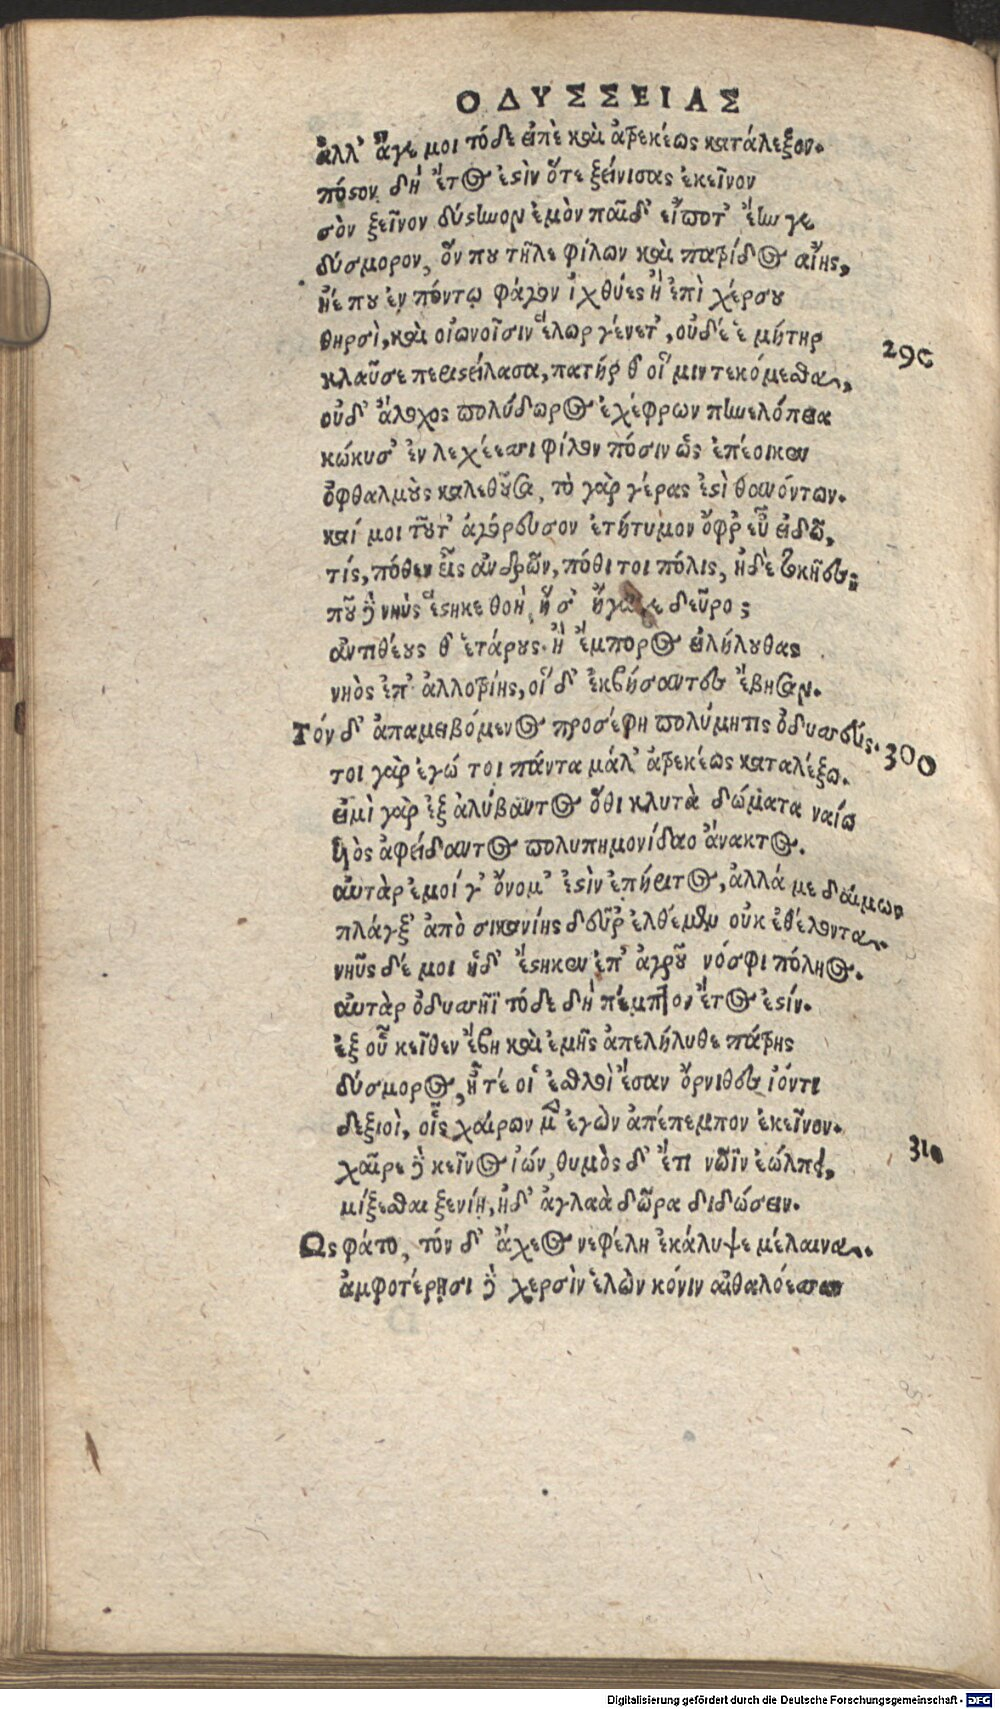 ΟΔΥΣΣΕΙΑΣ
ἀλλ' ἄγε μοι τόδε εἰπὲ καὶ ἀτρεκέως κατάλεξον.
πόστον δὴ ἔτος ἐστὶν ὅτε ξείνισας ἐκεῖνον
σὸν ξεῖνον δύστηνον ἐμὸν παῖδ' εἴποτ' ἔην γε
δύσμορον, ὅν που τῆλε φίλων καὶ πατρίδος αἴης,
ἠέ που ἐν πόντῳ φάγον ἰχθύες ἢ ἐπὶ χέρσου
θηρσὶ, καὶ οἰωνοῖσιν ἕλωρ γένετ', οὐδέ ἑ μήτηρ
290
κλαῦσε περιστείλασα, πατήρ θ' οἵ μιν τεκόμεσθα,
οὐδ' ἄλοχος πολύδωρος ἐχέφρων πηνελόπεια
κώκυσ' ἐν λεχέεσσι φίλον πόσιν ὡς ἐπέοικεν
ὀφθαλμοὺς καλεθοῦσα, τὸ γὰρ γέρας ἐστὶ θανόντων.
καί μοι τοῦτ' ἀγόρευσον ἐτήτυμον ὄφρ' εὖ εἰδῶ,
τίς, πόθεν εἶς ἀνδρῶν, πόθι τοι πόλις, ἠδὲ τοκῆες;
ποῦ δὲ νηῦς ἕστηκε θοὴ, ἥ σ' ἤγαγε δεῦρο;
ἀντιθέους θ' ἑτάρους. ἢ ἔμπορος εἰλήλουθας
νηὸς ἐπ' ἀλλοτρίης, οἵ δ' ἐκβήσαντες ἔβησαν.
Τόν δ' ἀπαμειβόμενος προσέφη πολύμητις ὀδυσσεύς.
300
τοι γὰρ ἐγώ τοι πάντα μάλ' ἀτρεκέως καταλέξω.
εἰμὶ γὰρ ἐξ ἀλύβαντος ὅθι κλυτὰ δώματα ναίω
υἱὸς ἀφείδαντος πολυπημονίδαο ἄνακτος.
αὐτὰρ ἐμοί γ' ὄνομ' ἐστὶν ἐπήριτος, ἀλλά με δαίμων
πλάγξ' ἀπὸ σικανίης δεῦρ' ἐλθέμεν οὐκ ἐθέλοντα.
νηῦς δέ μοι ἥδ' ἕστηκεν ἐπ' ἀγροῦ νόσφι πόληος.
αὐτὰρ ὀδυσσῆϊ τόδε δὴ πέμπτον ἔτος ἐστίν.
ἐξ οὗ κεῖθεν ἔβη καὶ ἐμῆς ἀπελήλυθε πάτρης
δύσμορος, ἦ τέ οἱ ἐσθλοὶ ἔσαν ὄρνιθες ἰόντι
δεξιοὶ, οἷς χαίρων μὲν ἐγὼν ἀπέπεμπον ἐκεῖνον.
310
χαῖρε δὲ κεῖνος ἰών, θυμὸς δ' ἔτι νῶϊν ἐώλπει,
μίξεσθαι ξενίῃ, ἠδ' ἀγλαὰ δῶρα διδώσειν.
Ως φάτο, τόν δ' ἄχεος νεφέλη ἐκάλυψε μέλαινα.
ἀμφοτέρῃσι δὲ χερσὶν ἑλὼν κόνιν αἰθαλόεσσαν
Digitalisierung gefördert durch die Deutsche Forschungsgemeinschaft - DFG